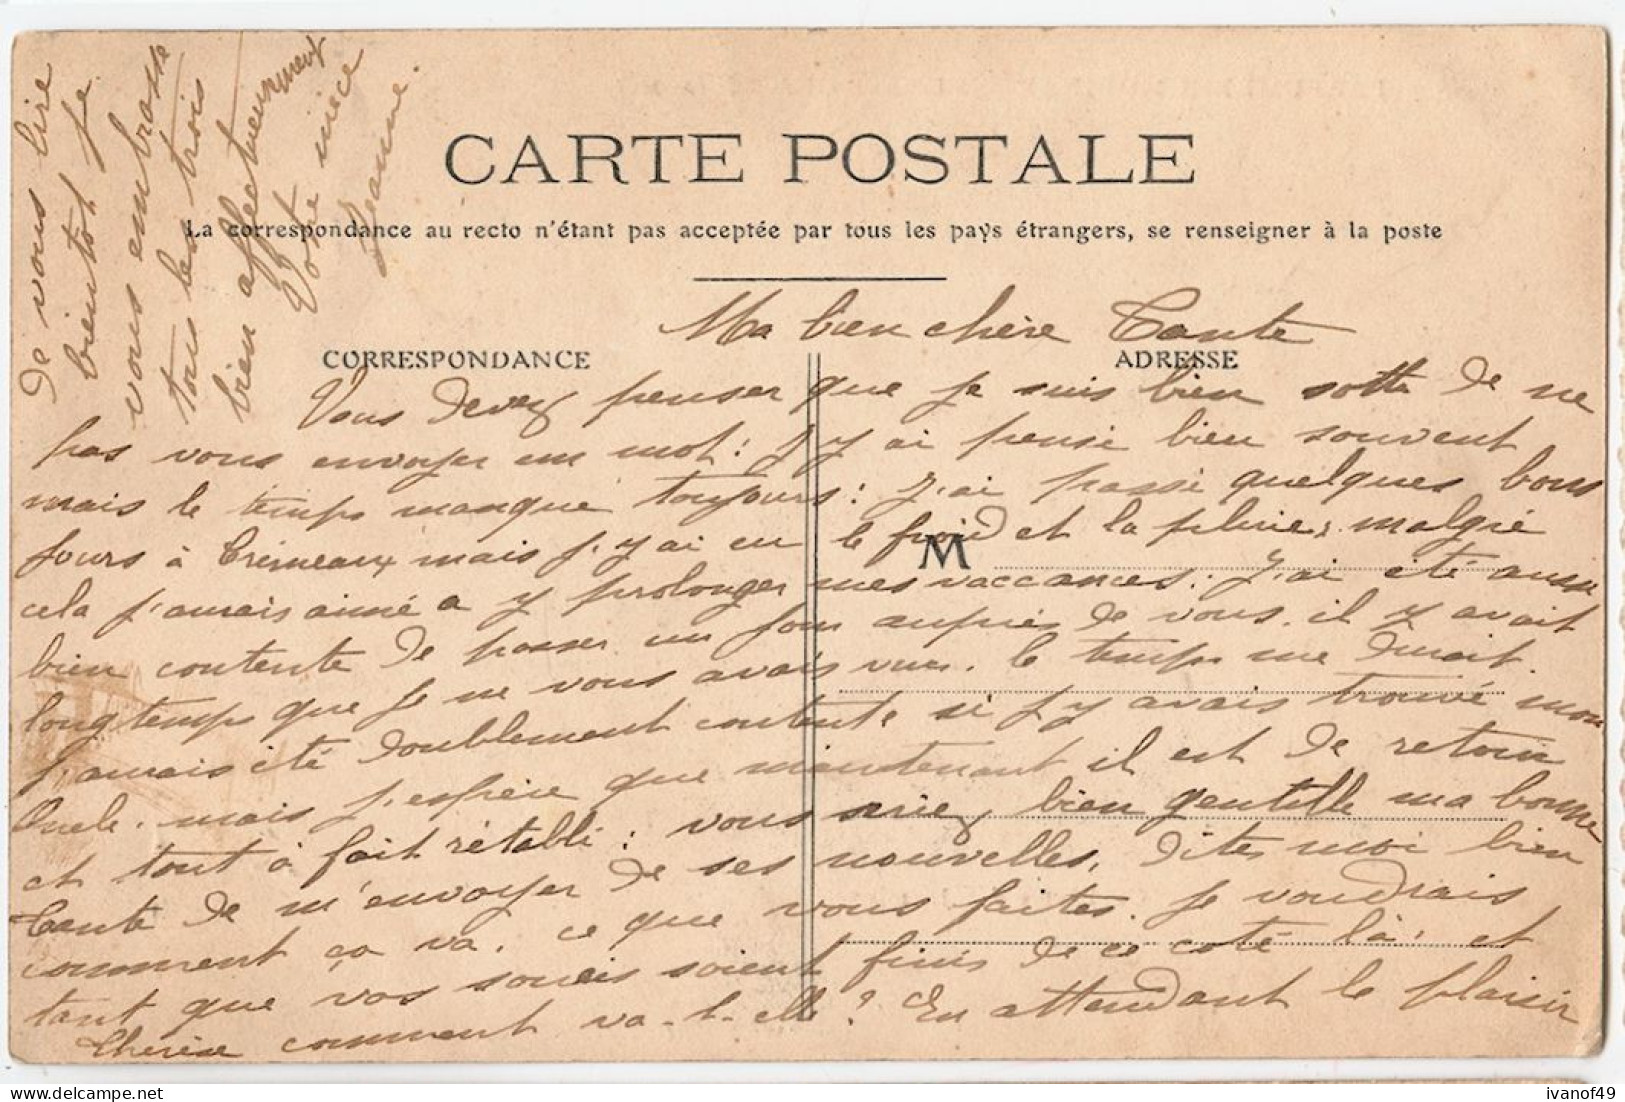 CARTE POSTALE
La correspondance au recto n'étant pas acceptée par tous les pays étrangers, se renseigner à la poste
CORRESPONDANCE
ADRESSE
M
Ma bien chère Tante
Vous devez penser que je suis bien sotte de ne
pas vous envoyer un mot : j'y ai pensé bien souvent
mais le temps manque toujours : j'ai passé quelques bons
jours à Crémeaux mais j'y ai eu le froid et la pluie, malgré
cela j'aurais aimé a y prolonger mes vaccances. J'ai été aussi
bien contente de passer un jour auprès de vous, il y avait
longtemps que je ne vous avais vus. le temps me durait.
j'aurais été doublement contente si j'y avais trouvé mon
Oncle. mais j'espère que maintenant il est de retour
et tout à fait rétabli : vous seriez bien gentille ma bonne
Tante de m'envoyer de ses nouvelles, dites moi bien
comment ça va. ce que vous faites. Je voudrais
tant que vos soucis soient finis de ce coté là, et
Thérèse comment va-t-elle ? En attendant le plaisir
de vous lire
bientôt je
vous embrasse
tous les trois
bien affectueusement
Votre nièce
Jeanne.
ivanof49